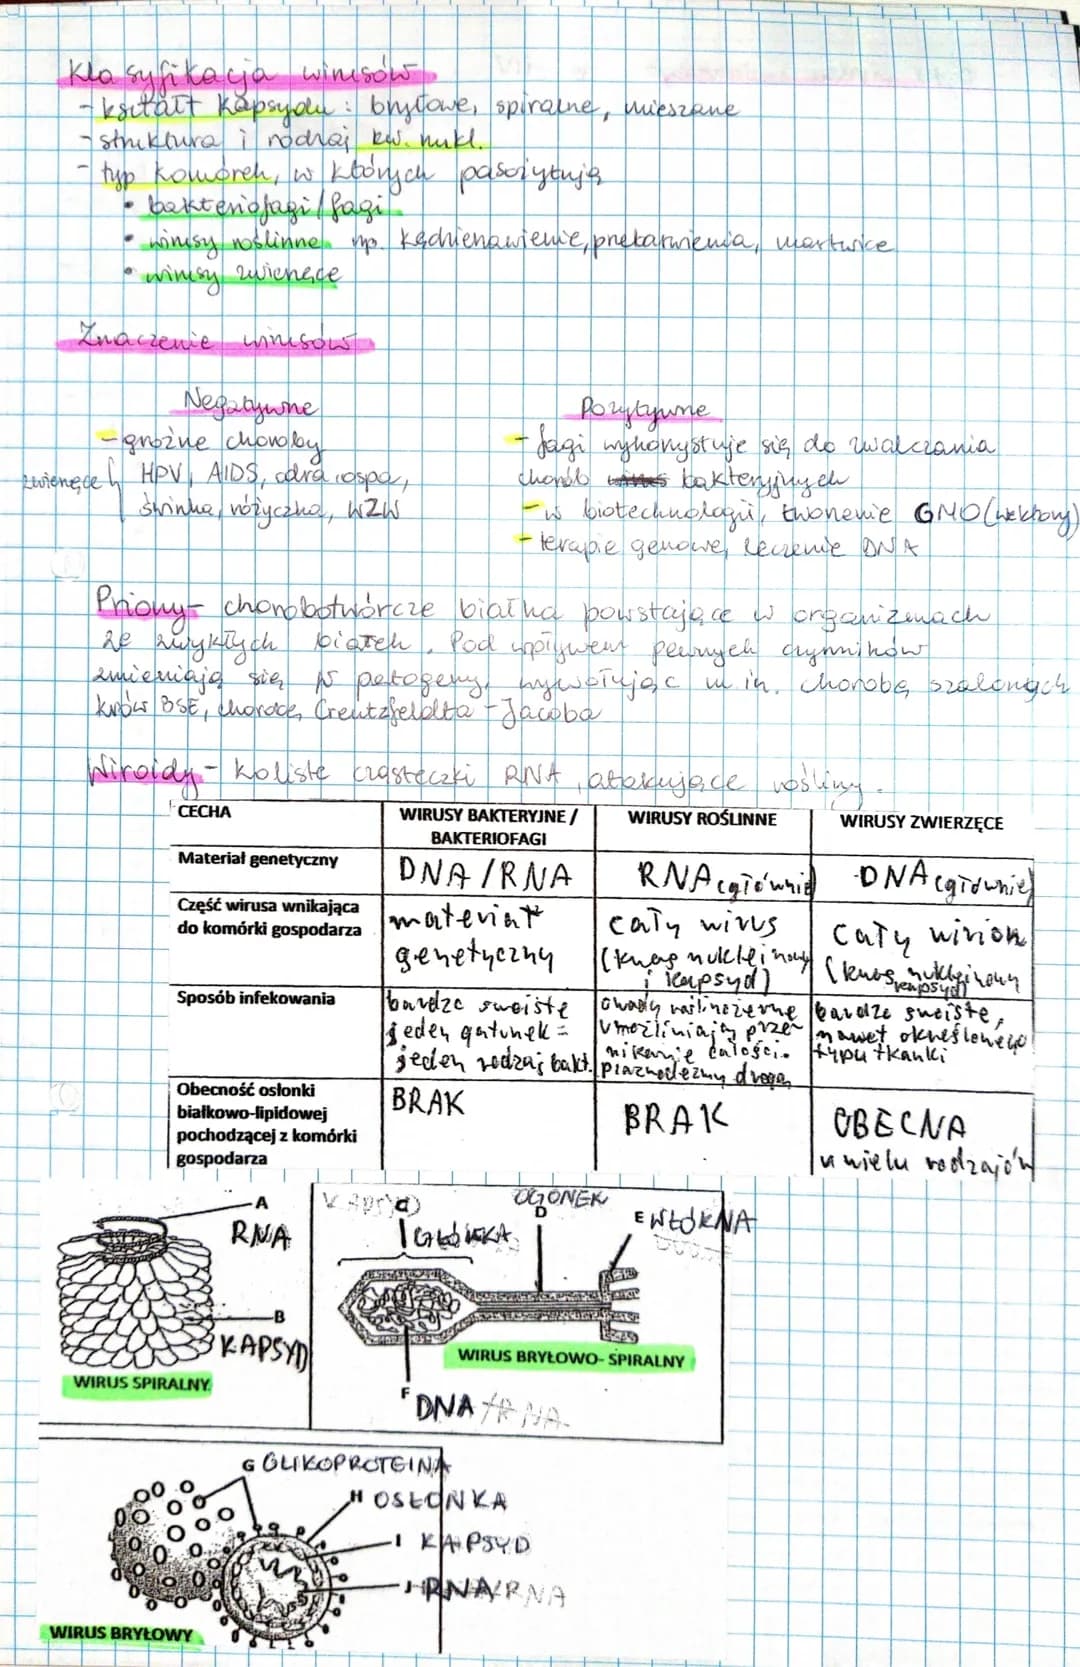 Klasyfikacja wirusów
- kształt kapsydu: bryłowe, spiralne, mieszane
- struktura i rodzaj kw. nukl.
- typ komórek, w których pasożytują
• bakteriofagi/fagi
• wirusy roślinne np. kędzierzawienie, przebarwienia, martwice
• wirusy zwierzęce
Znaczenie wirusów
Negatywne
- groźne choroby
zwierzęce HPV, AIDS, odra, ospa,
świnka, różyczka, WZW
Pozytywne
- fagi wykorzystuje się do zwalczania
chorób bakteryjnych
- w biotechnologii, tworzenie GMO (wektory)
- terapie genowe, leczenie DNA
Priony - chorobotwórcze białka powstające w organizmach
ze zwykłych białek. Pod wpływem pewnych czynników
zmieniają się w patogeny, wywołując m.in. chorobę szalonych
krów BSE, chorobę Creutzfeldta-Jacoba
Wiroidy - koliste cząsteczki RNA, atakujące rośliny.
CECHA WIRUSY BAKTERYJNE / BAKTERIOFAGI WIRUSY ROŚLINNE WIRUSY ZWIERZĘCE
Materiał genetyczny DNA/RNA RNA (głównie) DNA (głównie)
Część wirusa wnikająca do komórki gospodarza
materiał genetyczny
cały wirus (kwas nukleinowy i kapsyd)
cały wirion (kwas nukleinowy kapsyd)
Sposób infekowania
bardzo swoiste jeden gatunek = jeden rodzaj bakt.
owady roślinożerne umożliwiają przenikanie całości.
drogą
bardzo swoiste, nawet określonego typu tkanki
Obecność osłonki białkowo-lipidowej pochodzącej z komórki gospodarza
BRAK
BRAK
OBECNA u wielu rodzajów
A
RNA
B
KAPSYD
WIRUS SPIRALNY
KAPSYD
GŁÓWKA
OGONEK
D
E WŁÓKNA
WIRUS BRYŁOWO- SPIRALNY
F
DNA/RNA
G GLIKOPROTEINA
H OSŁONKA
I KAPSYD
J RNA/RNA
WIRUS BRYŁOWY